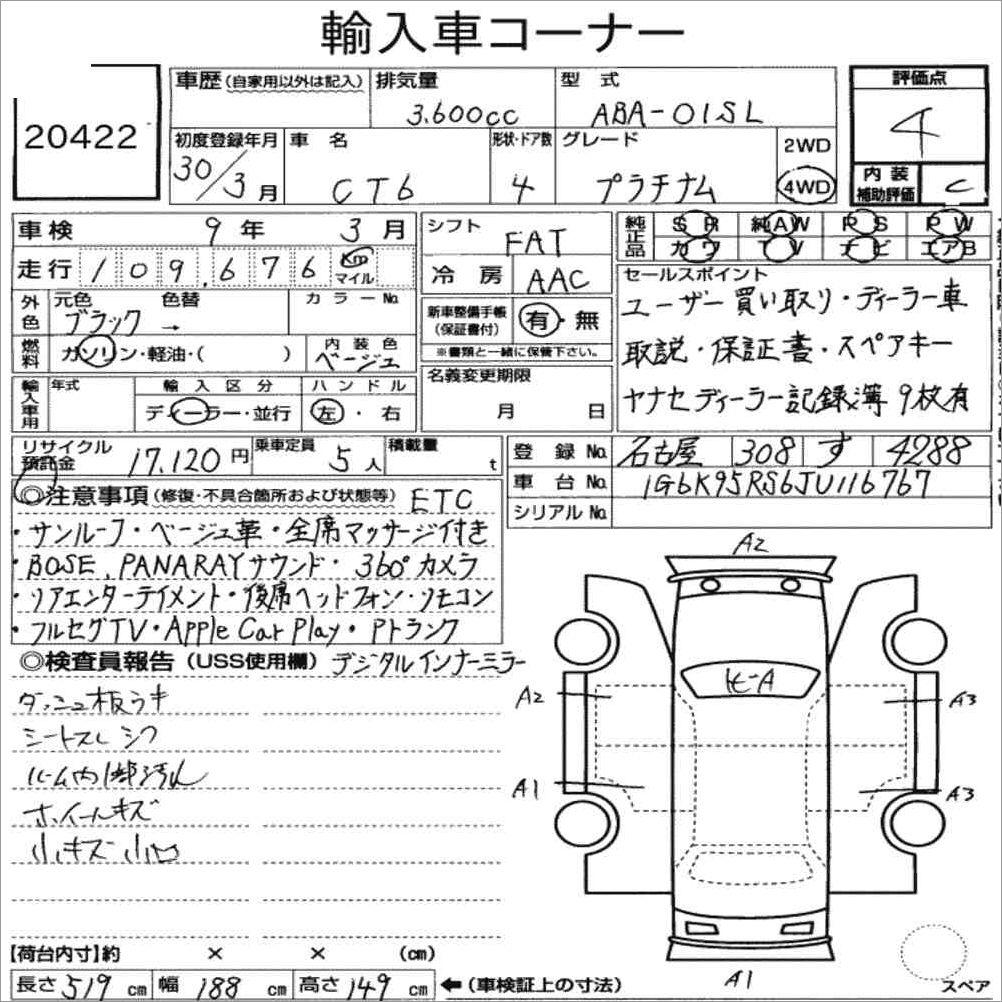 輸入車コーナー
20422
車歴(自家用以外は記入)
排気量 3.600cc
型式 ABA-01SL
評価点 4
初度登録年月 30/3月
車名 CT6
形状・ドア数 4
グレード プラチナム
2WD
4WD
内装補助評価 C
車検 9年 3月
シフト FAT
純正品 SR 純AW PS PW
カワ TV ナビ エアB
走行 109,676 km マイル
冷房 AAC
セールスポイント
ユーザー買い取り・ディーラー車
取説・保証書・スペアキー
ヤナセディーラー記録簿 9枚有
外色 元色 ブラック → 色替 カラーNo.
新車整備手帳(保証書付) 有・無
※書類と一緒に保管下さい。
燃料 ガソリン・軽油・( )
内装色 ベージュ
名義変更期限 月 日
輸入車用 年式
輸入区分 ディーラー・並行
ハンドル 左・右
リサイクル預託金 17,120円
乗車定員 5人
積載量 t
登録No. 名古屋 308 す 4288
車台No. 1G6K95RS6JU116767
シリアルNo.
◎注意事項(修復・不具合箇所および状態等) ETC
・サンルーフ・ベージュ革・全席マッサージ付き
・BOSE、PANARAYサウンド・360°カメラ
・リアエンターテイメント・後席ヘッドフォン・リモコン
・フルセグTV・Apple Car Play・Pトランク
◎検査員報告(USS使用欄) デジタルインナーミラー
ダッシュ板ウキ
シートスレ シワ
ルーム内 汚れ
ホイールキズ
小キズ 小凹
A2
ヒーA
A2
A3
A1
A3
A1
【荷台内寸】約 × × (cm)
長さ519cm 幅188cm 高さ149cm ←(車検証上の寸法)
スペア